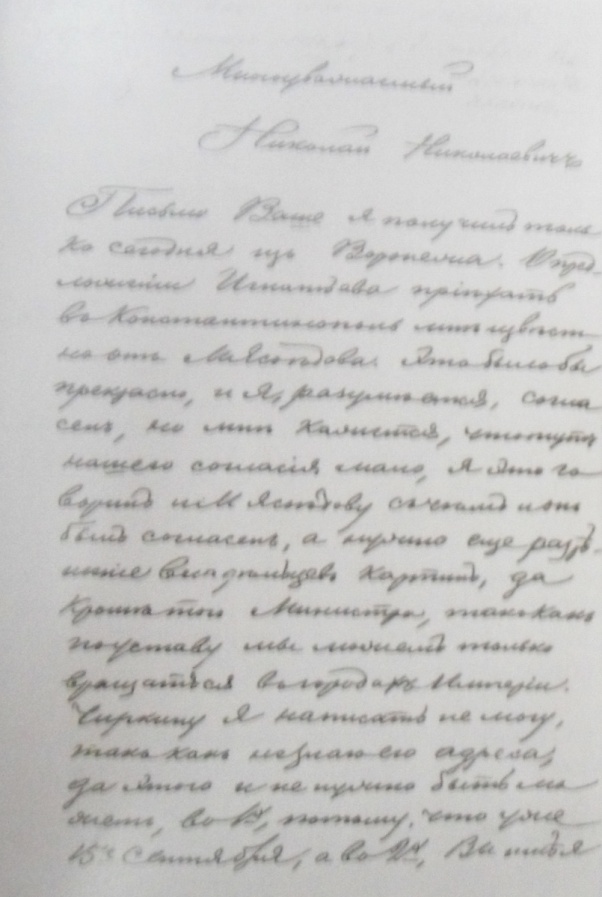 Многуважаемый
Николай Николаевичъ
Письмо Ваше я получилъ толь
ко сегодня изъ Воронежа. О пред-
ложеніи Игнатьева пріѣхать
въ Константинополь мнѣ извѣст
но отъ Мясоѣдова. Это было бы
прекрасно, и я, разумѣется, согла
сенъ, но мнѣ кажется, что тутъ
нашего согласія мало, я это го
ворилъ и Мясоѣдову съ чѣмъ и онъ
былъ согласенъ, а нужно еще разрѣ-
шеніе владѣльцевъ картинъ, да
кромѣ того Министра, такъ какъ
по уставу мы можемъ только
вращаться въ городахъ Имперіи.
Чиркину я написать не могу,
такъ какъ незнаю его адреса,
да этого и не нужно быть мо
жетъ, во 1хъ, потому, что уже
15е Сентября, а во 2хъ, Вы